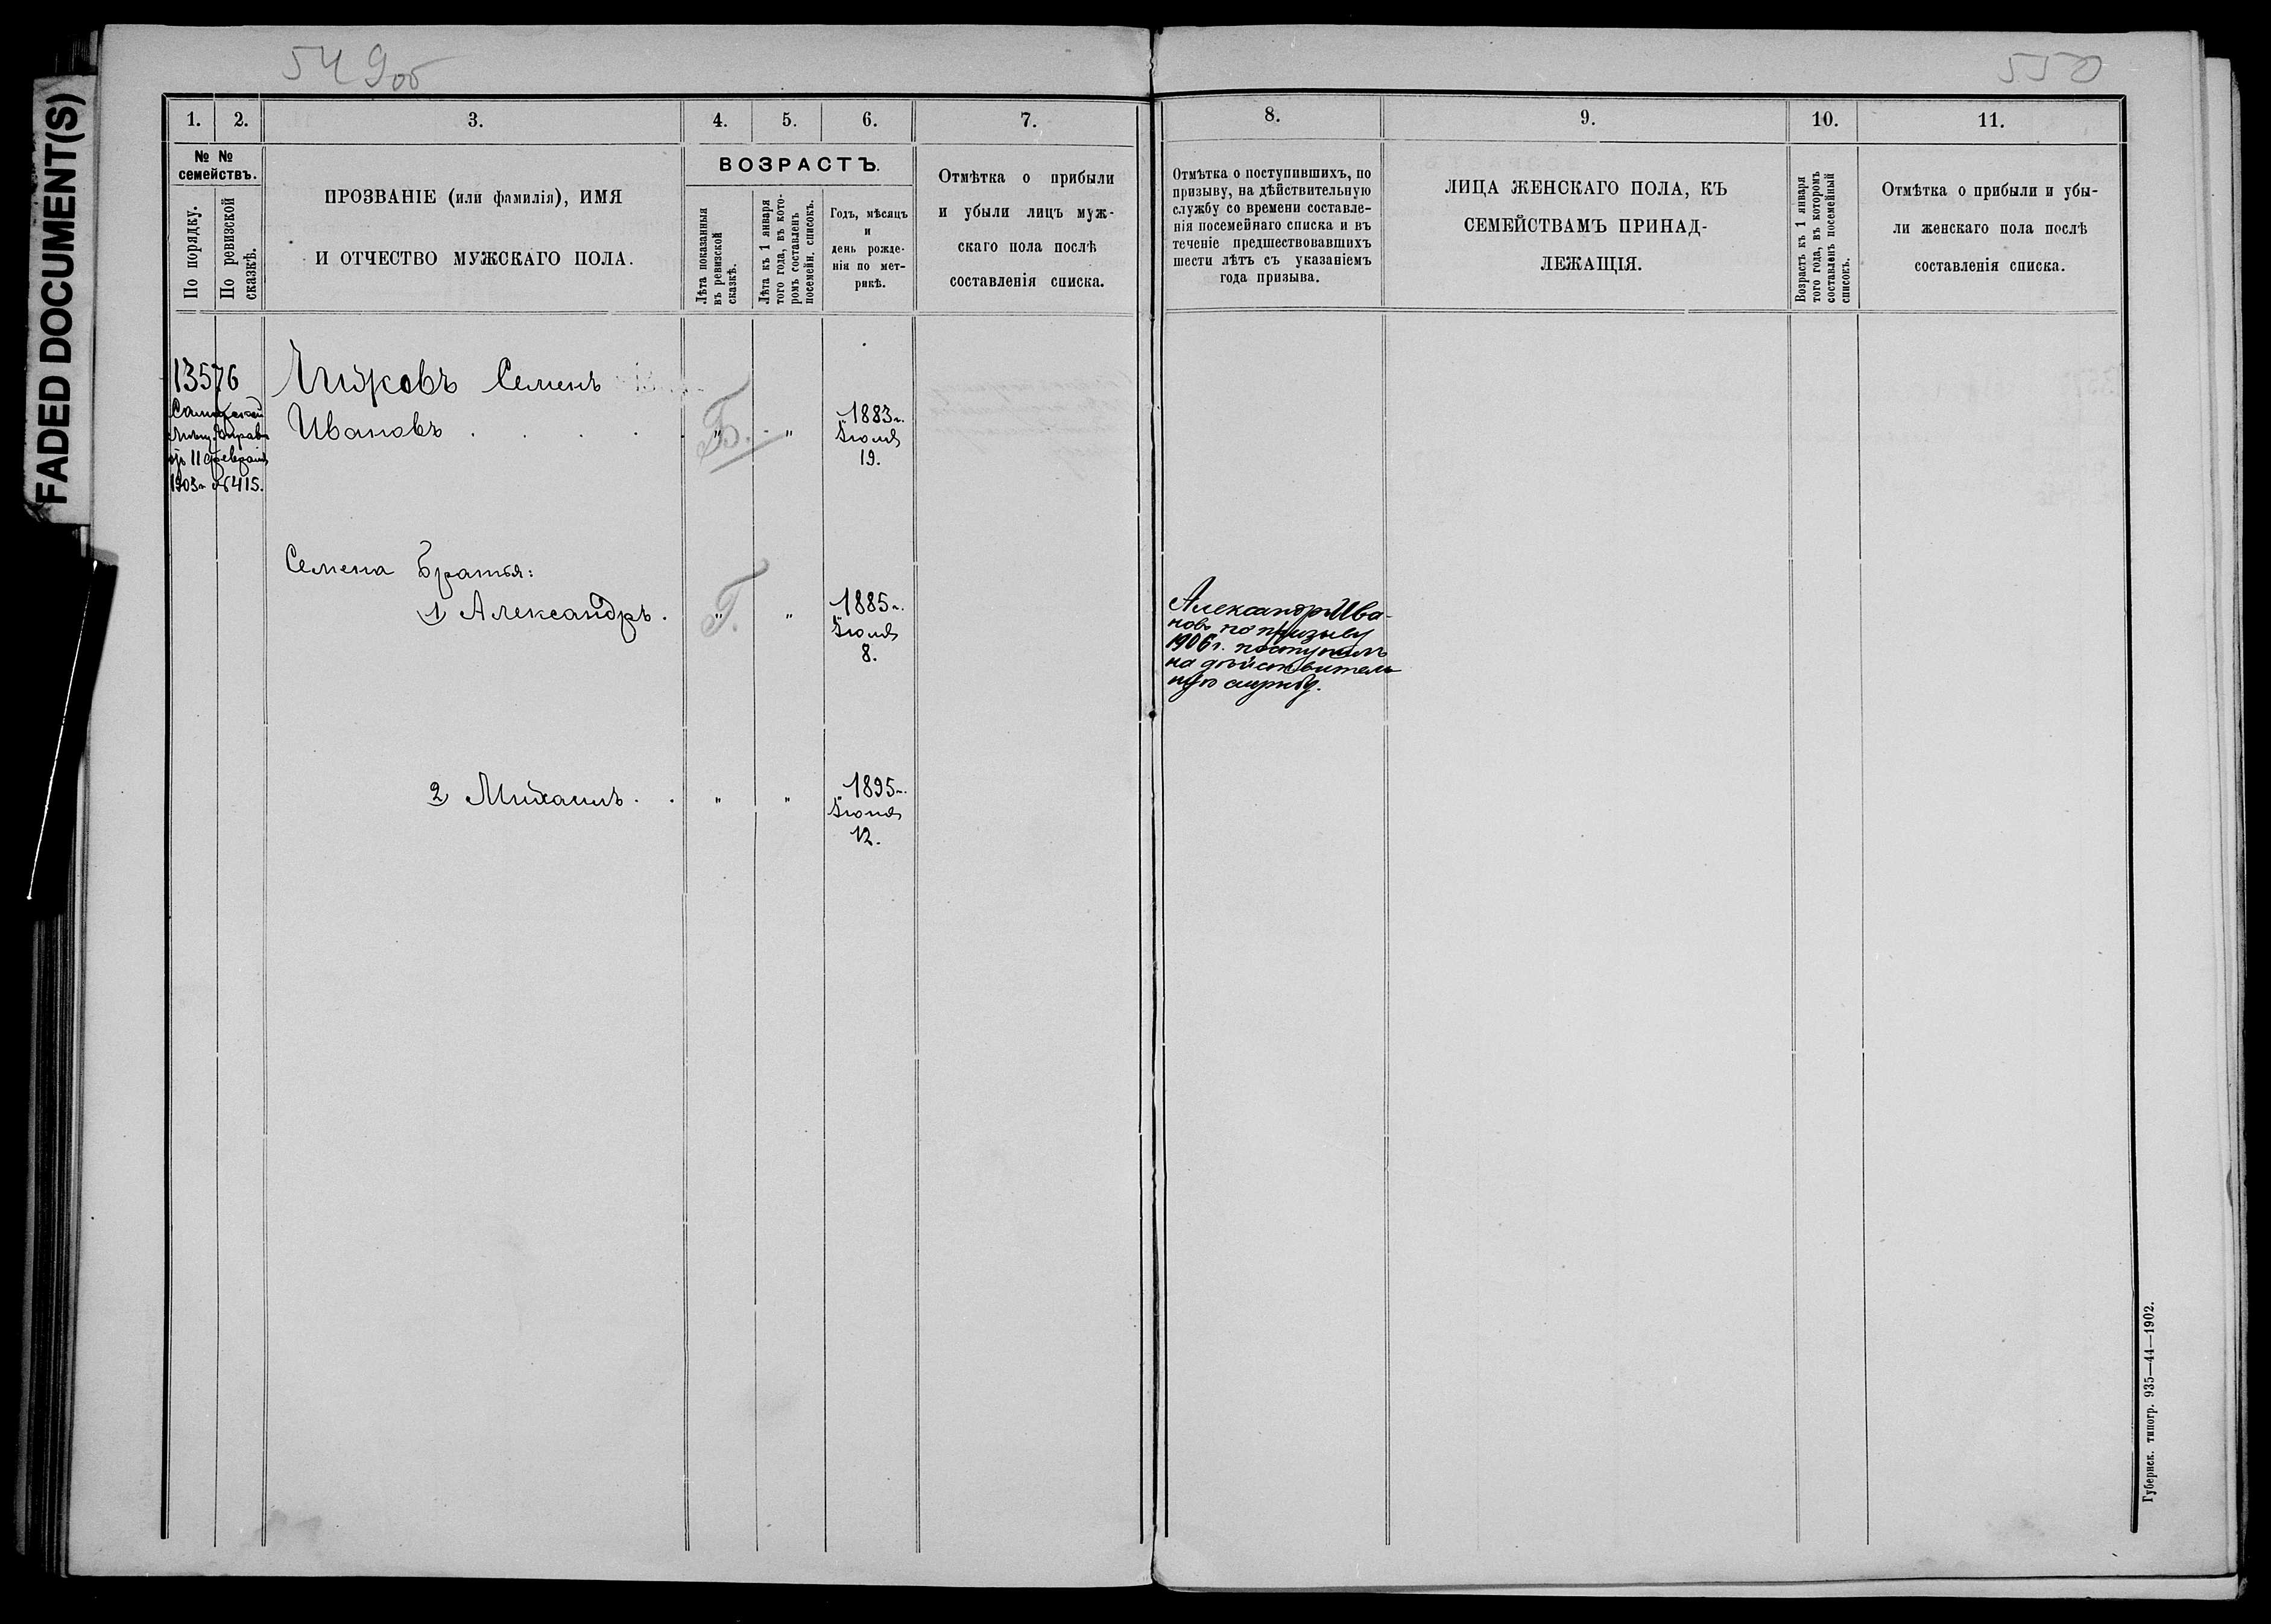 FADED DOCUMENT(S)
549об
550
1. 2. 3. 4. 5. 6. 7.
№ №
семействъ.
По порядку.
По ревизской
сказкѣ.
ПРОЗВАНІЕ (или фамилія), ИМЯ
И ОТЧЕСТВО МУЖСКАГО ПОЛА.
ВОЗРАСТЪ.
Лѣта показанныя
въ ревизской
сказкѣ.
Лѣта къ 1 января
того года, въ кото-
ромъ составленъ
посемейн. списокъ.
Годъ, мѣсяцъ
и
день рожде-
нія по мет-
рикѣ.
Отмѣтка о прибыли
и убыли лицъ муж-
скаго пола послѣ
составленія списка.
8. 9. 10. 11.
Отмѣтка о поступившихъ, по
призыву, на дѣйствительную
службу со времени составле-
нія посемейнаго списка и въ
теченіе предшествовавшихъ
шести лѣтъ съ указаніемъ
года призыва.
ЛИЦА ЖЕНСКАГО ПОЛА, КЪ
СЕМЕЙСТВАМЪ ПРИНАД-
ЛЕЖАЩІЯ.
Возрастъ къ 1 января
того года, въ которомъ
составленъ посемейный
списокъ.
Отмѣтка о прибыли и убы-
ли женскаго пола послѣ
составленія списка.
13576
от 11 февраля
1903г. № 415.
Семенъ
Ивановъ . . . . " Б. "
1883г.
Іюля
19.
Семена братья:
1) Александръ . " Г. "
1885г.
Іюля
8.
2) Михаилъ . . " "
1895г.
Іюня
12.
Александръ Ива-
новъ по призыву
1906г. поступилъ
на дѣйствитель
ную службу.
Губернск. типогр. 935—44—1902.